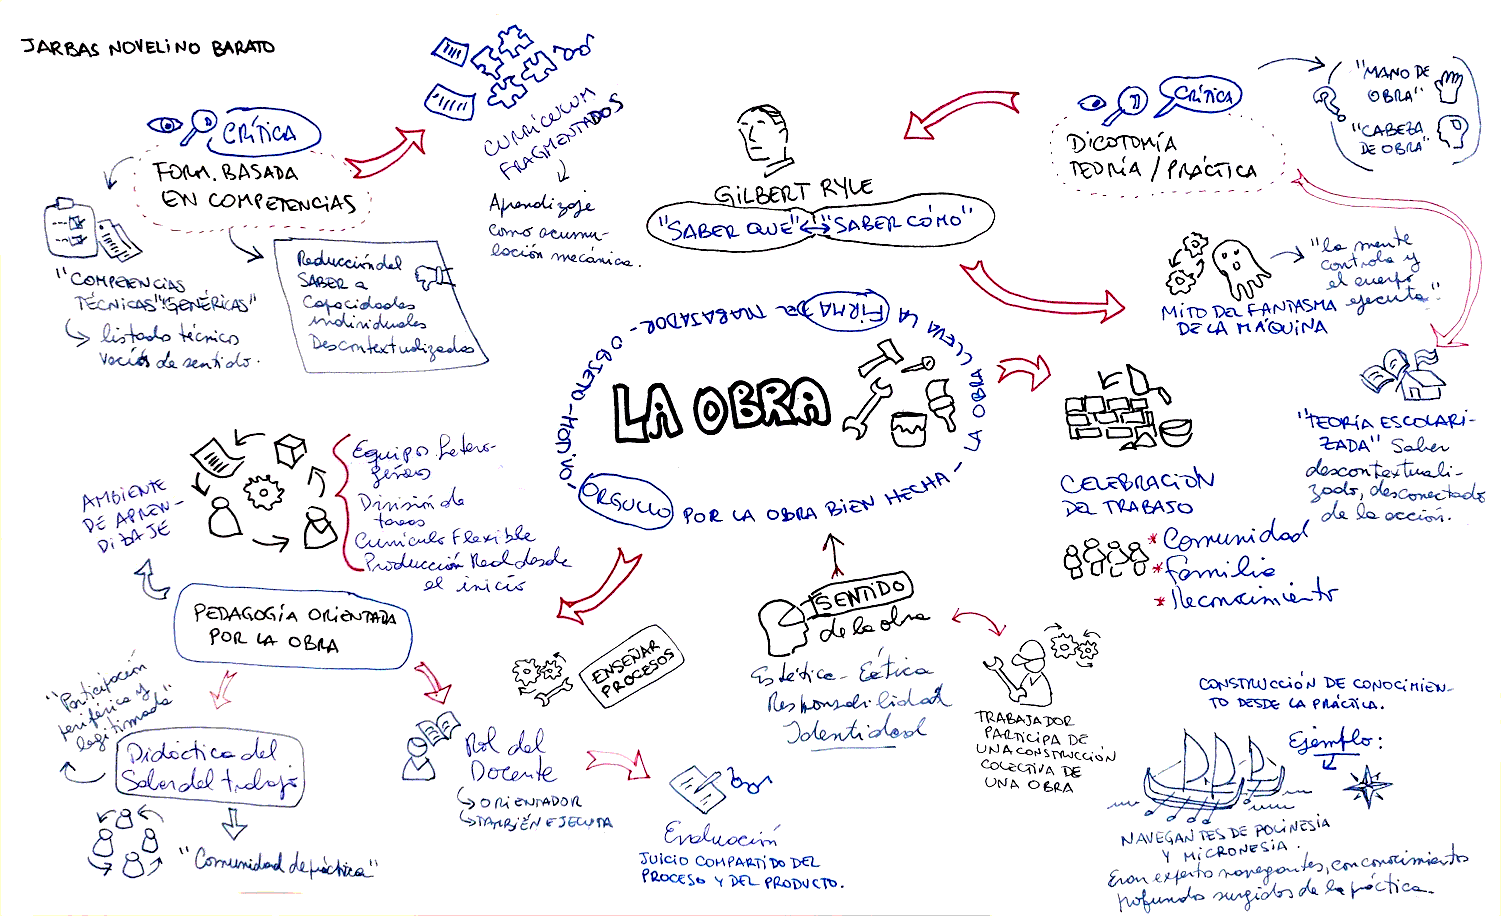 JARBAS NOVELINO BARATO
CRÍTICA
FORM. BASADA
EN COMPETENCIAS
"COMPETENCIAS
TÉCNICAS" "GENÉRICAS"
listado técnico
vacíos de sentido.
Reducción del
SABER a
Capacidades
individuales
Descontextualizadas
CURRÍCULUM
FRAGMENTADOS
Aprendizaje
como acumu-
lación mecánica.
GILBERT RYLE
"SABER QUE" "SABER CÓMO"
CRÍTICA
DICOTOMÍA
TEORÍA / PRÁCTICA
"MANO DE
OBRA"
"CABEZA
DE OBRA"
"la mente
controla y
el cuerpo
ejecuta"
MITO DEL FANTASMA
DE LA MÁQUINA
"TEORÍA ESCOLARI-
ZADA" Saber
descontextuali-
zado, desconectado
de la acción.
LA OBRA
OBJETO-MOTIVO-
ORGULLO POR LA OBRA BIEN HECHA-
LA OBRA LLEVA LA FIRMA DEL TRABAJADOR-
CELEBRACIÓN
DEL TRABAJO
* Comunidad
* Familia
* Reconocimiento
AMBIENTE
DE APREN-
DIZAJE
Equipos hetero-
géneos
División de
tareas
Currículo Flexible
Producción Real desde
el inicio
PEDAGOGÍA ORIENTADA
POR LA OBRA
"Participación
periférica y
legitimada"
Didáctica del
Saber del trabajo
"Comunidad de práctica"
Rol del
Docente
ORIENTADOR
TAMBIÉN EJECUTA
ENSEÑAR
PROCESOS
Evaluación
JUICIO COMPARTIDO DEL
PROCESO Y DEL PRODUCTO.
SENTIDO
de la obra
Estética - Ética
Responsabilidad
Identidad
TRABAJADOR
PARTICIPA DE
UNA CONSTRUCCIÓN
COLECTIVA DE
UNA OBRA
CONSTRUCCIÓN DE CONOCIMIEN-
TO DESDE LA PRÁCTICA.
Ejemplo:
NAVEGANTES DE POLINESIA
Y MICRONESIA.
Eran experto navegantes, con conocimientos
profundo surgidos de la práctica.